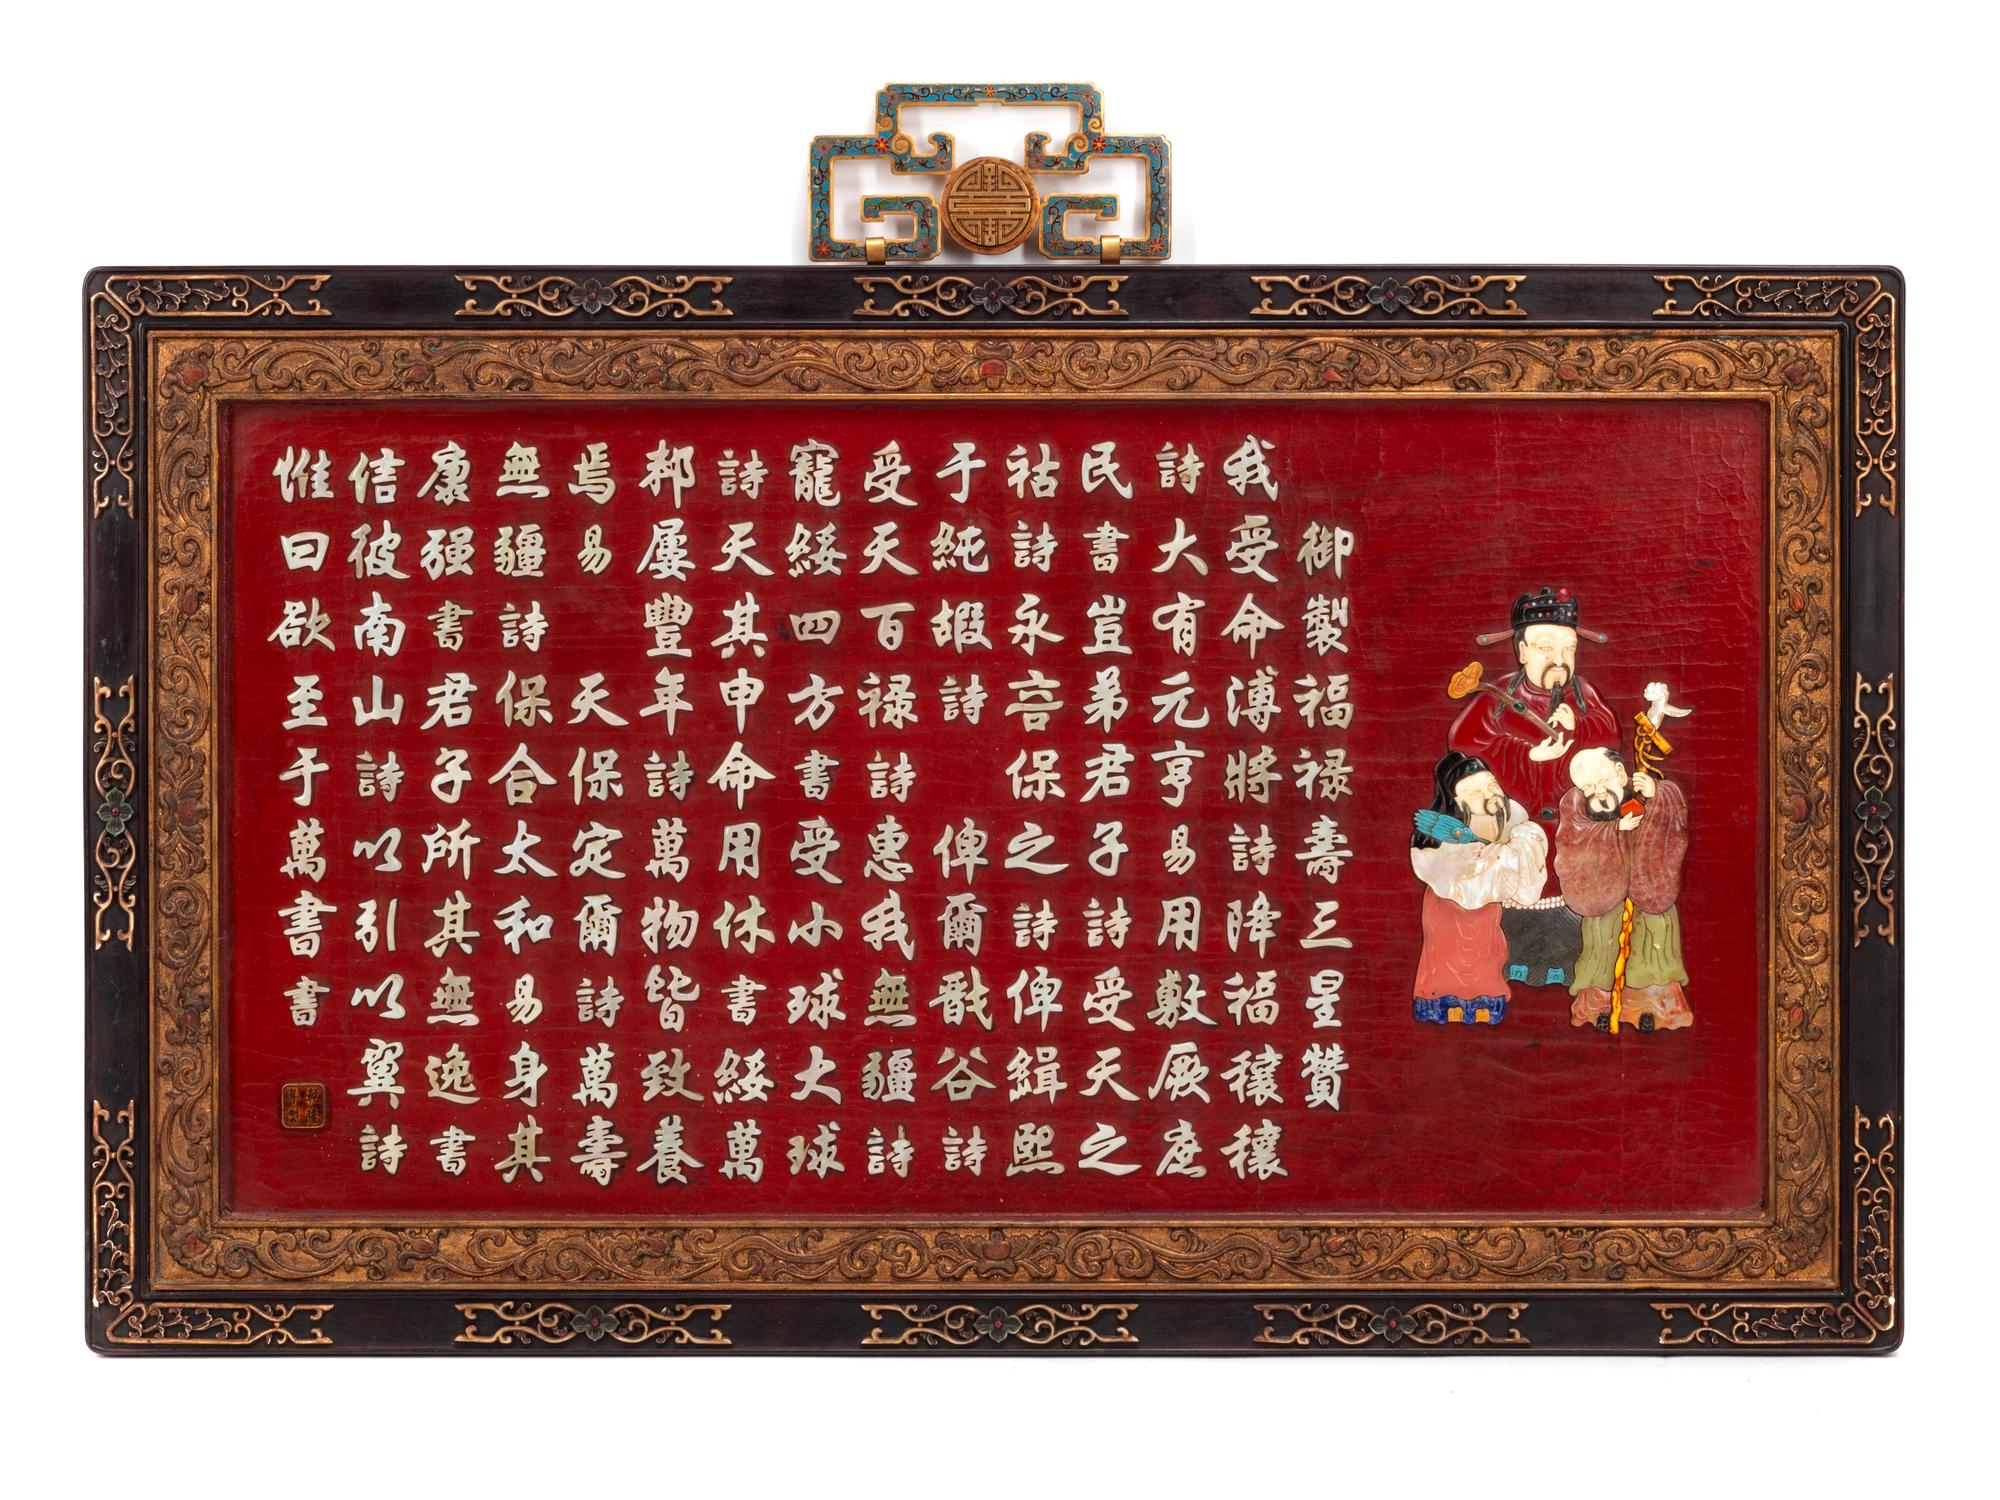 御製福禄壽三星贊
我受命溥將詩降福穰穰
詩大有元亨易用敷厥庶
民書豈弟君子詩受天之
祜詩永言保之詩俾緝熙
于純嘏詩 俾爾戩谷詩
受天百禄詩惠我無疆詩
寵綏四方書受小球大球
詩天其申命用休書綏萬
邦屢豐年詩萬物皆致養
焉易 天保定爾詩萬壽
無疆詩保合太和易身其
康强書君子所其無逸書
信彼南山詩以引以翼詩
惟曰欲至于萬書書
乾隆年製